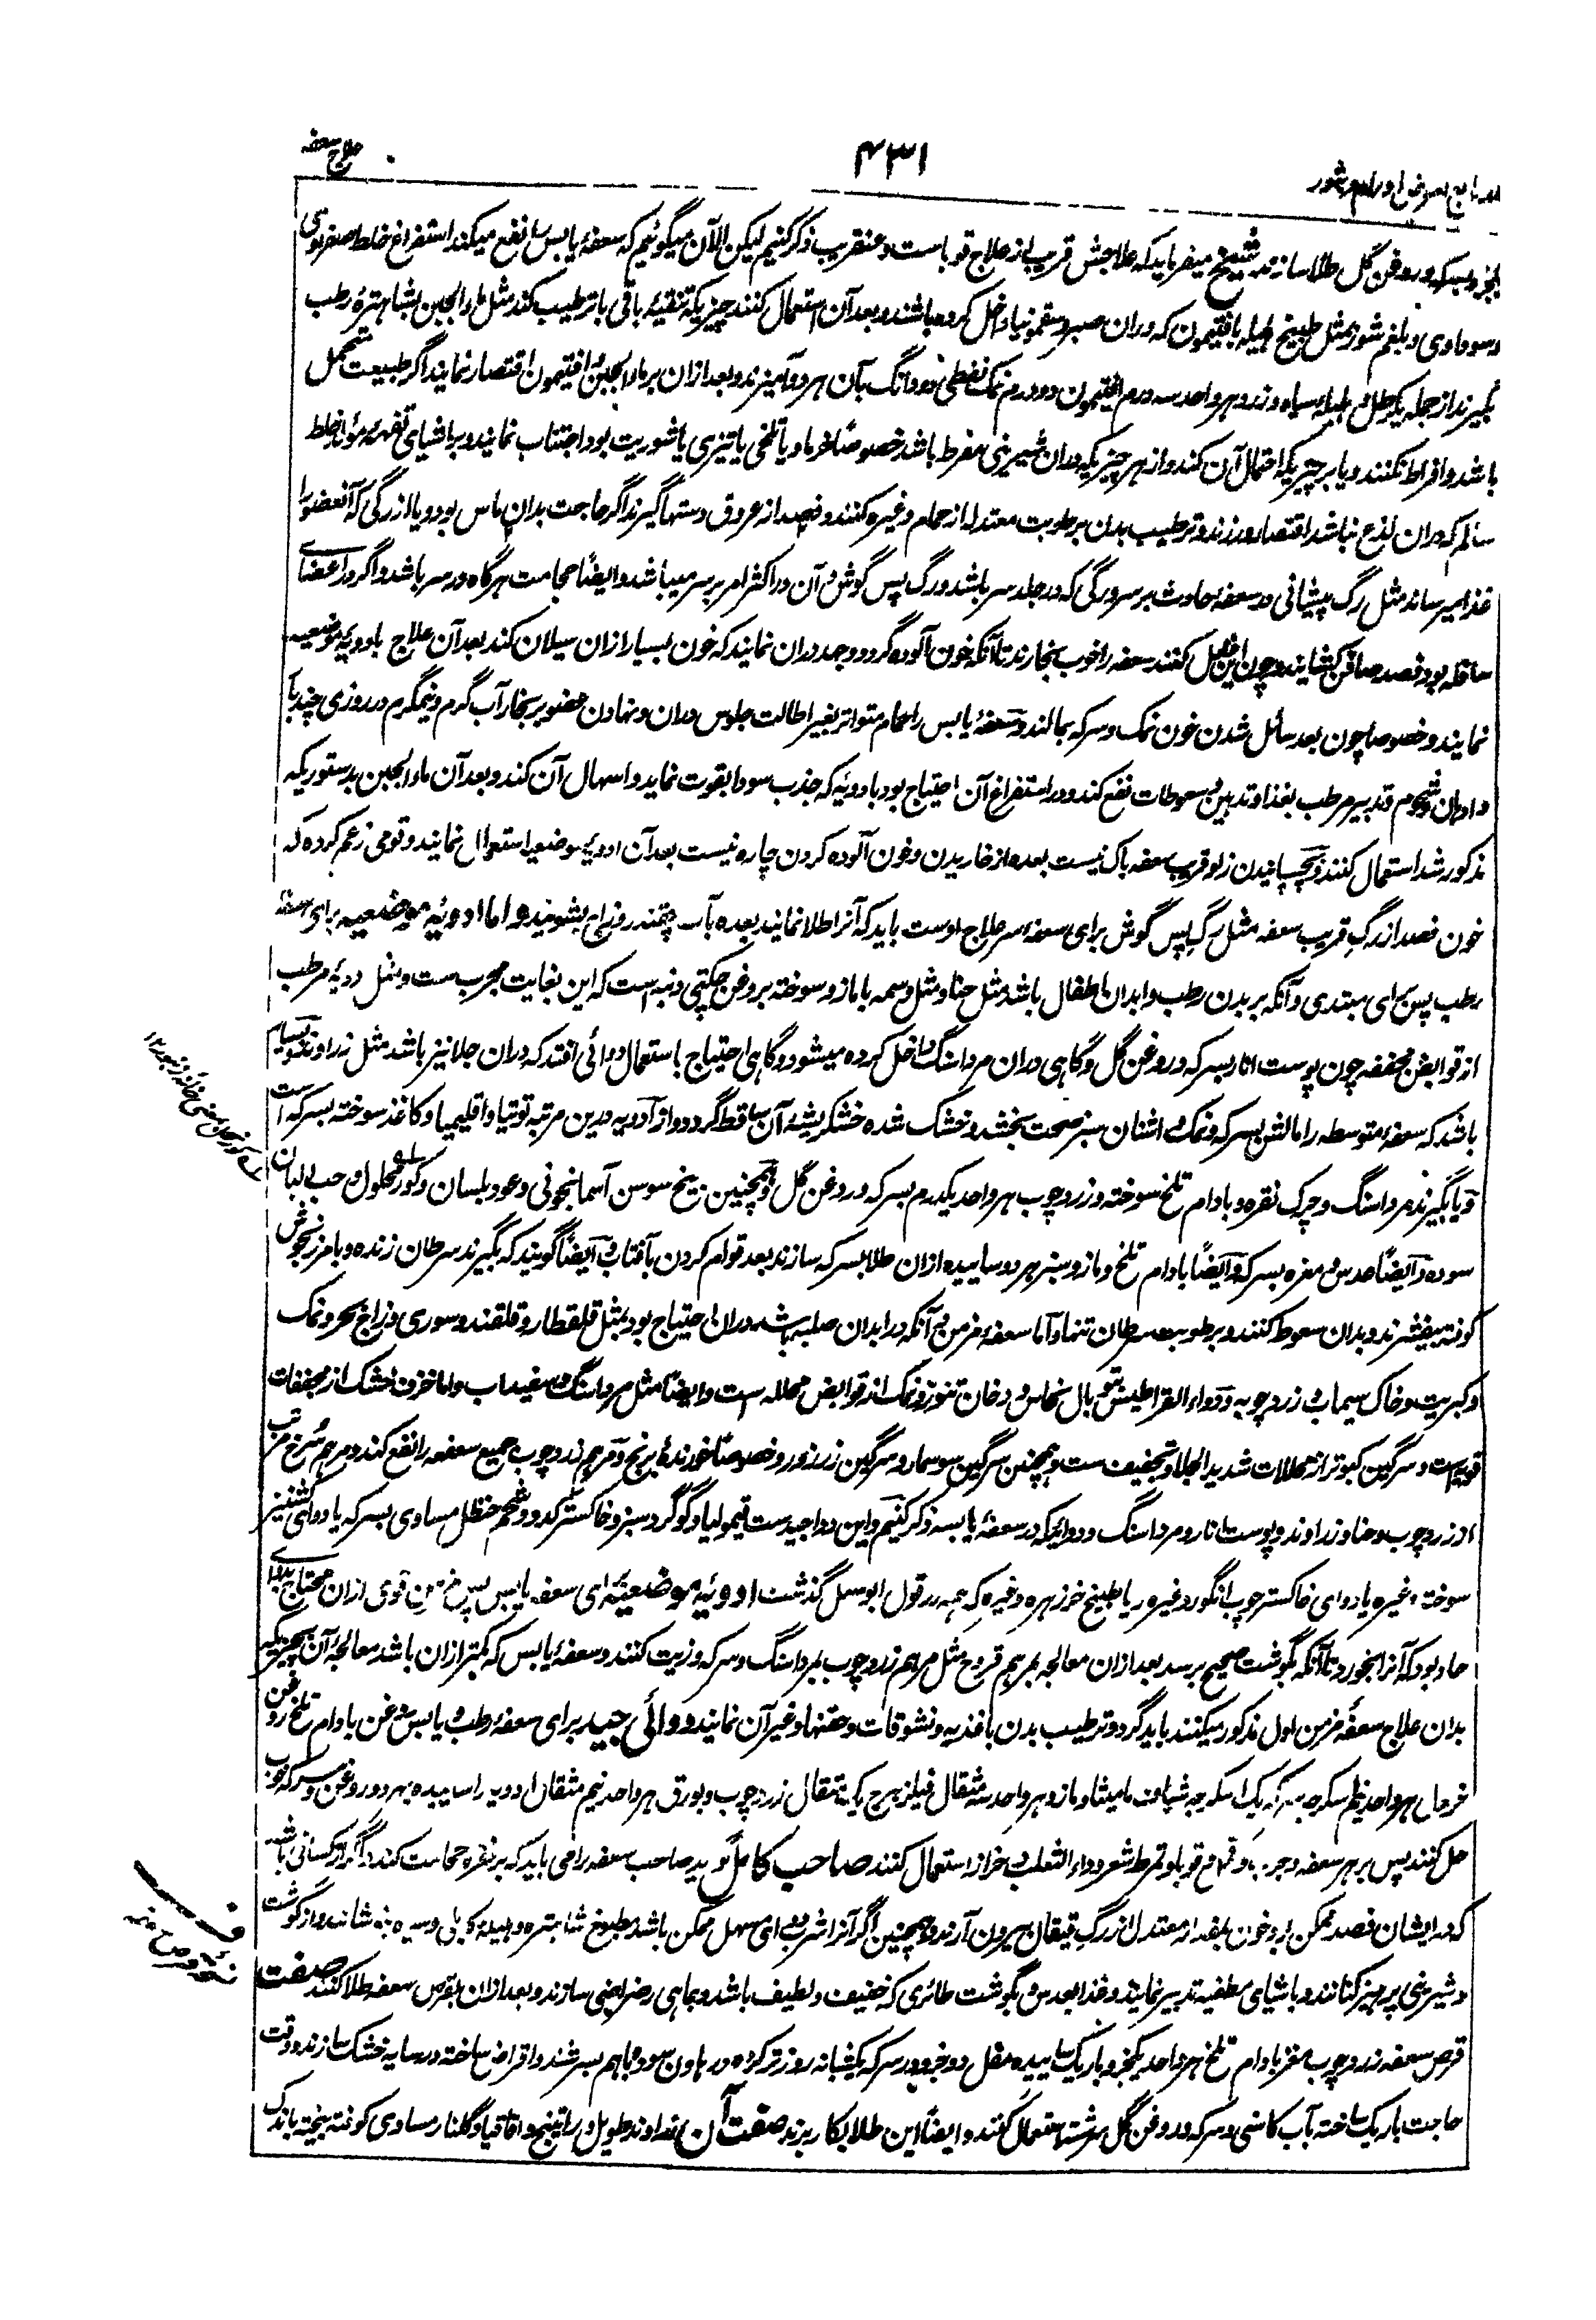 علاج سعفه
۴۳۱
امراض اورام و بثور
بسرکه و روغن گل طلا سازند شیخ میفرماید که علاجش قریب از علاج قوباست و عنقریب ذکر کنیم لیکن الآن میگوئیم که سعفهٔ یابس را نفع میکند استفراغ خلط صفراوی
و سوداوی و بلغم شور بمثل طبیخ هلیله بافتیمون که دران صبر و سقمونیا داخل کرده باشند و بعد آن استعمال کنند چیزیکه تنقیهٔ باقی با ترطیب کند مثل ماء الجبن بشاهترهٔ رطب
بگیرند از جمله یکرطل و هلیلهٔ سیاه و زرد هر واحد سه درم افتیمون دو درم نمک نفطی دو دانگ بآن هر دو آمیزند و بعد ازان بر ماء الجبن افتیمون اقتصار نمایند اگر طبیعت متحمل
باشد و افراط نکنند و یا بر چیزیکه احتمال آن کند و از هر چیزیکه دران شیرینی مفرط باشد خصوصاً خرما و یا تلخی یا تیزی یا شوریت بود اجتناب نمایند و بر اشیای تفهه مولد خلط
سالم که دران لذع نباشد اقتصار ورزند و ترطیب بدن برطوبت معتدله از حمام و غیره کنند و فصد از عروق دستها گیرند اگر حاجت بدان ماس بود و یا از رگی که آنعضو را
غذا میرساند مثل رگ پیشانی در سعفهٔ حادث بر سر و رگی که در جلد سر باشد و رگ پس گوش و آن در اکثر امر بر سر میباشد و ایضاً حجامت هرگاه در سر باشد و اگر در اعضای
سافله بود فصد صافن کشایند و چون این عمل کنند سعفه را خوب بخارند تا آنکه خون آلوده گردد و جهد دران نمایند که خون بسیار ازان سیلان کند بعد آن علاج بادویهٔ موضعیه
نمایند و خصوصاً چون بعد سائل شدن خون نمک و سرکه بمالند و سعفهٔ یابس را حمام متواتر بغیر اطالت جلوس دران و نهادن عضو بر بخار آب گرم و نیمگرم در روزی چند بار
و ادهان و شحوم و تدبیر مرطب بغذا و تدهین و سعوطات نفع کند و در استفراغ آن احتیاج بود بادویهٔ که جذب سودا بقوت نماید و اسهال آن کند و بعد آن ماء الجبن بدستوریکه
مذکور شد استعمال کنند و بچسپانیدن زلو قریب سعفه باک نیست بعده از خاریدن و خون آلوده کردن چاره نیست بعد آن ادویهٔ موضعیه استعمال نمایند و قومی زعم کرده که
خون فصد از رگ قریب سعفه مثل رگ پس گوش برای سعفهٔ سر علاج اوست باید که آنرا طلا نمایند بعده بآب چقندر روزی بشویند و اما ادویهٔ موضعیه برای سعفهٔ
رطب پس برای مبتدی و آنکه بر بدن رطب و ابدان اطفال باشد مثل حنا و مثل وسمه یا مازو سوخته بروغن چکتی دنبه است که این بغایت مجرب ست و مثل ادویهٔ مرطب
از قوابض مجففه چون پوست انار بسرکه و روغن گل و گاهی دران مرداسنگ داخل کرده میشود و گاهی احتیاج باستعمال دوائی افتد که دران جلا نیز باشد مثل زراوند و بسیار
باشد که سعفهٔ متوسطه را مالش بسرکه و نمک و اشنان سبز صحت بخشد و خشک شده خشکریشهٔ آن ساقط گردد و از ادویه درین مرتبه توتیا و اقلیمیا و کاغذ سوخته بسرکه است
و یا بگیرند مرداسنگ و چرک نقره و بادام تلخ سوخته و زردچوب هر واحد یکدرم بسرکه و روغن گل و همچنین بیخ سوسن آسمانجونی و عود بلسان و کور محلول و حب البان
سوده و ایضاً عدس و مغره بسرکه و ایضاً بادام تلخ و مازو سبز هر دو ساییده ازان طلا بسرکه سازند بعد قوام کردن بآفتاب و ایضاً گویند که بگیرند سرطان زنده و با مرزنجوش
کوفته بیفشرند و بدان سعوط کنند و برطوبت سرطان تنها و اما سعفهٔ مزمن و آنکه در ابدان صلبه باشد دران احتیاج بود بمثل قلقطار و قلقند و سوری و زاج بحر و نمک
و کبریت و خاک سیماب و زردچوبه و دواء القراطیس و توبال نحاس و دخان تنور و نمک اند قوابض محلله ست و ایضاً مثل مرداسنگ و سفیداب و اما خزف خشک از مجففات
قویه ست و سرگین کبوتر از محللات شدید الجلا و تجفیف ست و همچنین سرگین سوسمار و سرگین زرزور و خصوصاً خورندهٔ برنج و مرهم زردچوب جمیع سعفه را نفع کند و مرهم سرخ مرتب
از زردچوب و حنا و زراوند و پوست انار و مرداسنگ و دوائیکه در سعفهٔ یابسه ذکر کنیم و این دوا جید ست قیمولیا و گوگرد سبز و خاکستر کدو و شحم حنظل مساوی بسرکه یا دوای کشنیز
سوخته و غیره یا دوای خاکستر چوب انگور و غیره یا طبیخ خرزهره و غیره که همه در قول ابوسهل گذشت ادویهٔ موضعیه ای سعفهٔ یابس پس مزمن قوی ازان محتاج بدوای
حاد بود که آنرا بخورد تا آنکه بگوشت صحیح برسد بعد ازان معالجه بمرهم قروح مثل مرهم زردچوب بمرداسنگ و سرکه و زیت کنند و سعفهٔ یابس که کمتر ازان باشد معالجهٔ آن بچیزیکه
بدان علاج سعفهٔ مزمن اول مذکور میکنند باید کرد و ترطیب بدن باغذیه و نشوقات و حقنها و غیر آن نمایند دوائی جید برای سعفهٔ رطب و یابس روغن بادام تلخ روغن
خردل هر واحد نیم سکرجه سرکه یک اسکرجه شیاف مامیثا و مازو هر واحد سه مثقال فیلزهرج یک مثقال زردچوب و بورق هر واحد نیم مثقال ادویه را ساییده بهر دو روغن و سرکه خوب
حل کنند پس بر هر سعفه و جرب و قمل و قوبا و تمرط شعر و داء الثعلب و حزاز استعمال کنند صاحب کامل گوید صاحب سعفه را می باید که بر نقره حجامت کند و اگر از کسانی باشد
که در ایشان فصد ممکن بود خون بقدر معتدل از رگ قیفال بیرون آرند و همچنین اگر آنرا شرب دوای مسهل ممکن باشد مطبوخ شاهتره و هلیلهٔ کابلی و سیاه بنوشانند و از گوشت
و شیرینی پرهیز کنانند و باشیای مطفیه تدبیر نمایند و غذا بعدس و بگوشت طائری که خفیف و لطیف باشد و بماهی رضراضی سازند و بعد ازان بقرص سعفه طلا کنند صفت
قرص سعفه زردچوب مغز بادام تلخ هر واحد یکجزو باریک ساییده مقل دو جزو در سرکه یکشبانه روز تر کرده در هاون سوده باهم بسرشند و اقراص ساخته در سایه خشک سازند و وقت
حاجت باریک ساخته آب کاسنی و سرکه و روغن گل سرشته استعمال کنند و ایضاً این طلا بکار برند صفت آن زراوند طویل و راتینج و اقاقیا و گلنار مساوی کوفته بیخته باندک